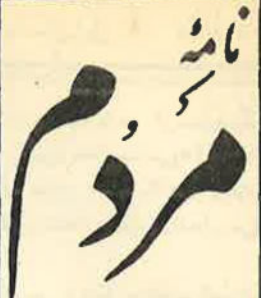 نامهٔ
مَردُم